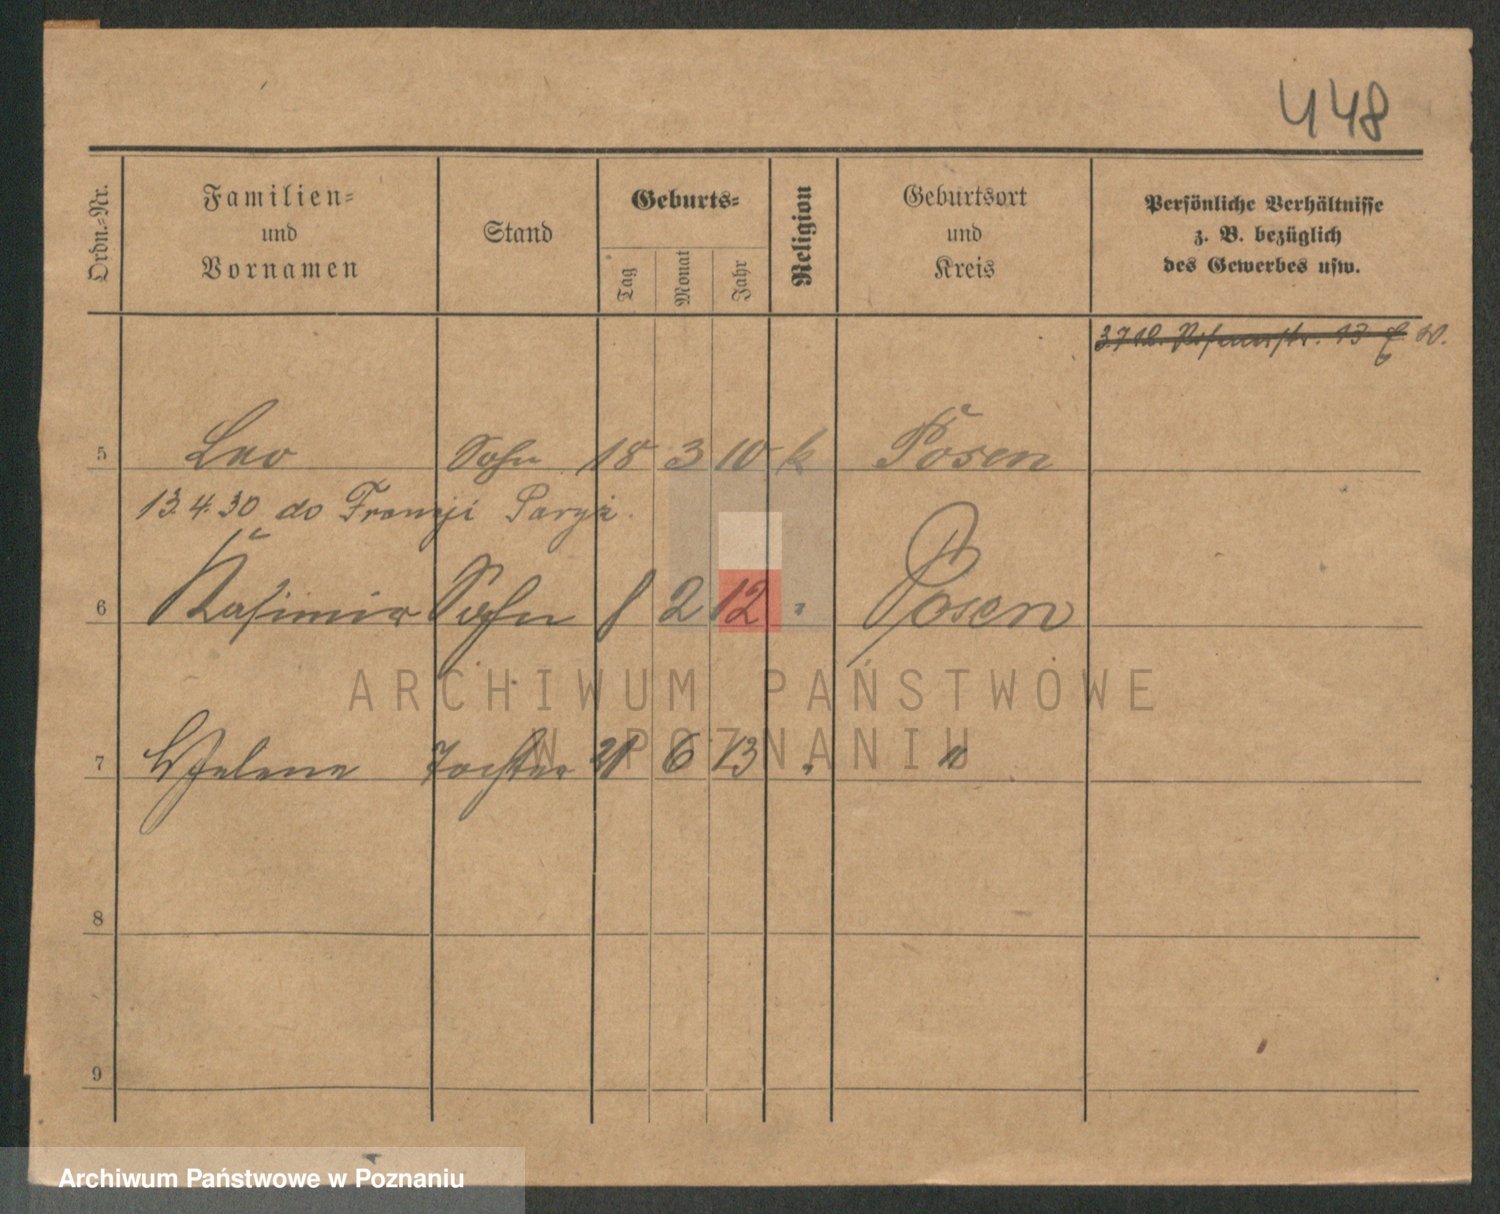 448
Ordn.-Nr.
Familien-
und
Vornamen
Stand
Geburts-
Tag
Monat
Jahr
Religion
Geburtsort
und
Kreis
Persönliche Verhältnisse
z. B. bezüglich
des Gewerbes usw.
13
5 Leo Sohn 18 3 10 k Posen
13.4.30 do Francji Paryż.
6 Kasimir Sohn 2 12 " Posen
ARCHIWUM PAŃSTWOWE
W POZNANIU
7 Helene Tochter 21 6 13 " "
8
9
Archiwum Państwowe w Poznaniu